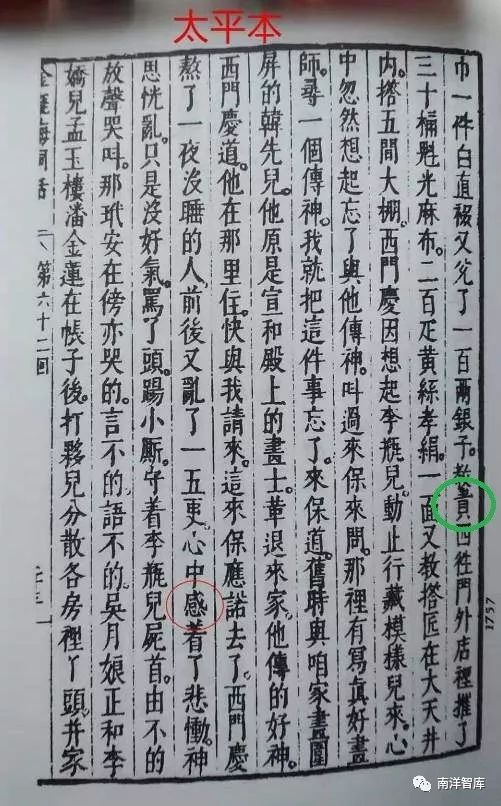 太平本
巾一件白直裰又兌了一百兩銀子。教賁四徃門外店裡推了
三十桶魁光麻布。二百疋黃絲孝絹。一面又教搭匠在大天井
內。搭五間大棚。西門慶因想起李瓶兒。動止行藏模樣兒來。心
中忽然想起忘了與他傳神。叫過來保來問。那裡有寫真好畫
師。尋一個傳神。我就把這件事忘了。來保道。舊時與咱家畫圍
屏的韓先兒。他原是宣和殿上的畫士。革退來家。他傳的好神。
西門慶道。他在那里住。快與我請來。這來保應諾去了。西門慶
熬了一夜沒睡的人。前後又亂了一五更。心中感着了悲慟。神
思恍亂。只是沒好氣。罵了頭。踢小厮。守着李瓶兒屍首。由不的
放聲哭叫。那玳安在傍亦哭的。言不的語不的。吳月娘正和李
嬌兒孟玉樓潘金蓮在帳子後。打夥兒分散各房裡丫頭。并家
金瓶梅詞話 第六十二回
1757
南洋智库